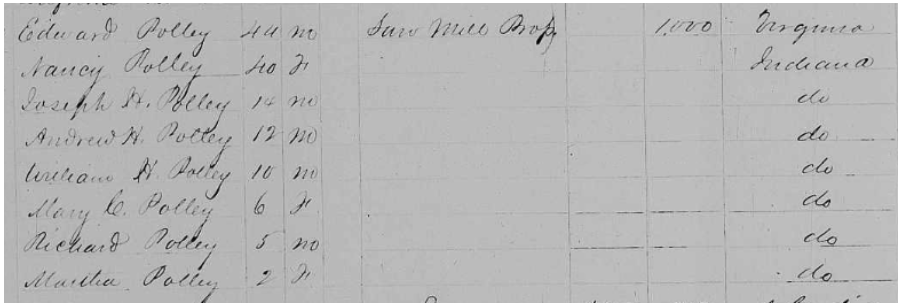 Edward Polley 44 m Saw Mill Prop 1,000 Virginia
Nancy Polley 40 F Indiana
Joseph H. Polley 14 m do
Andrew H. Polley 12 m do
William H. Polley 10 m do
Mary C. Polley 6 F do
Richard Polley 5 m do
Martha Polley 2 F do